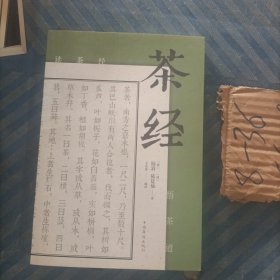 读茶经
茶经
悟茶道
茶者，南方之嘉木也。一尺、二尺乃至数十尺。
其巴山峡川有两人合抱者，伐而掇之。其树如
瓜芦，叶如栀子，花如白蔷薇，实如栟榈，叶
如丁香，根如胡桃。其字或从草，或从木，或
草木并。其名一曰茶，二曰槚，三曰蔎，四曰
茗，五曰荈。其地，上者生烂石，中者生砾壤，
8-36